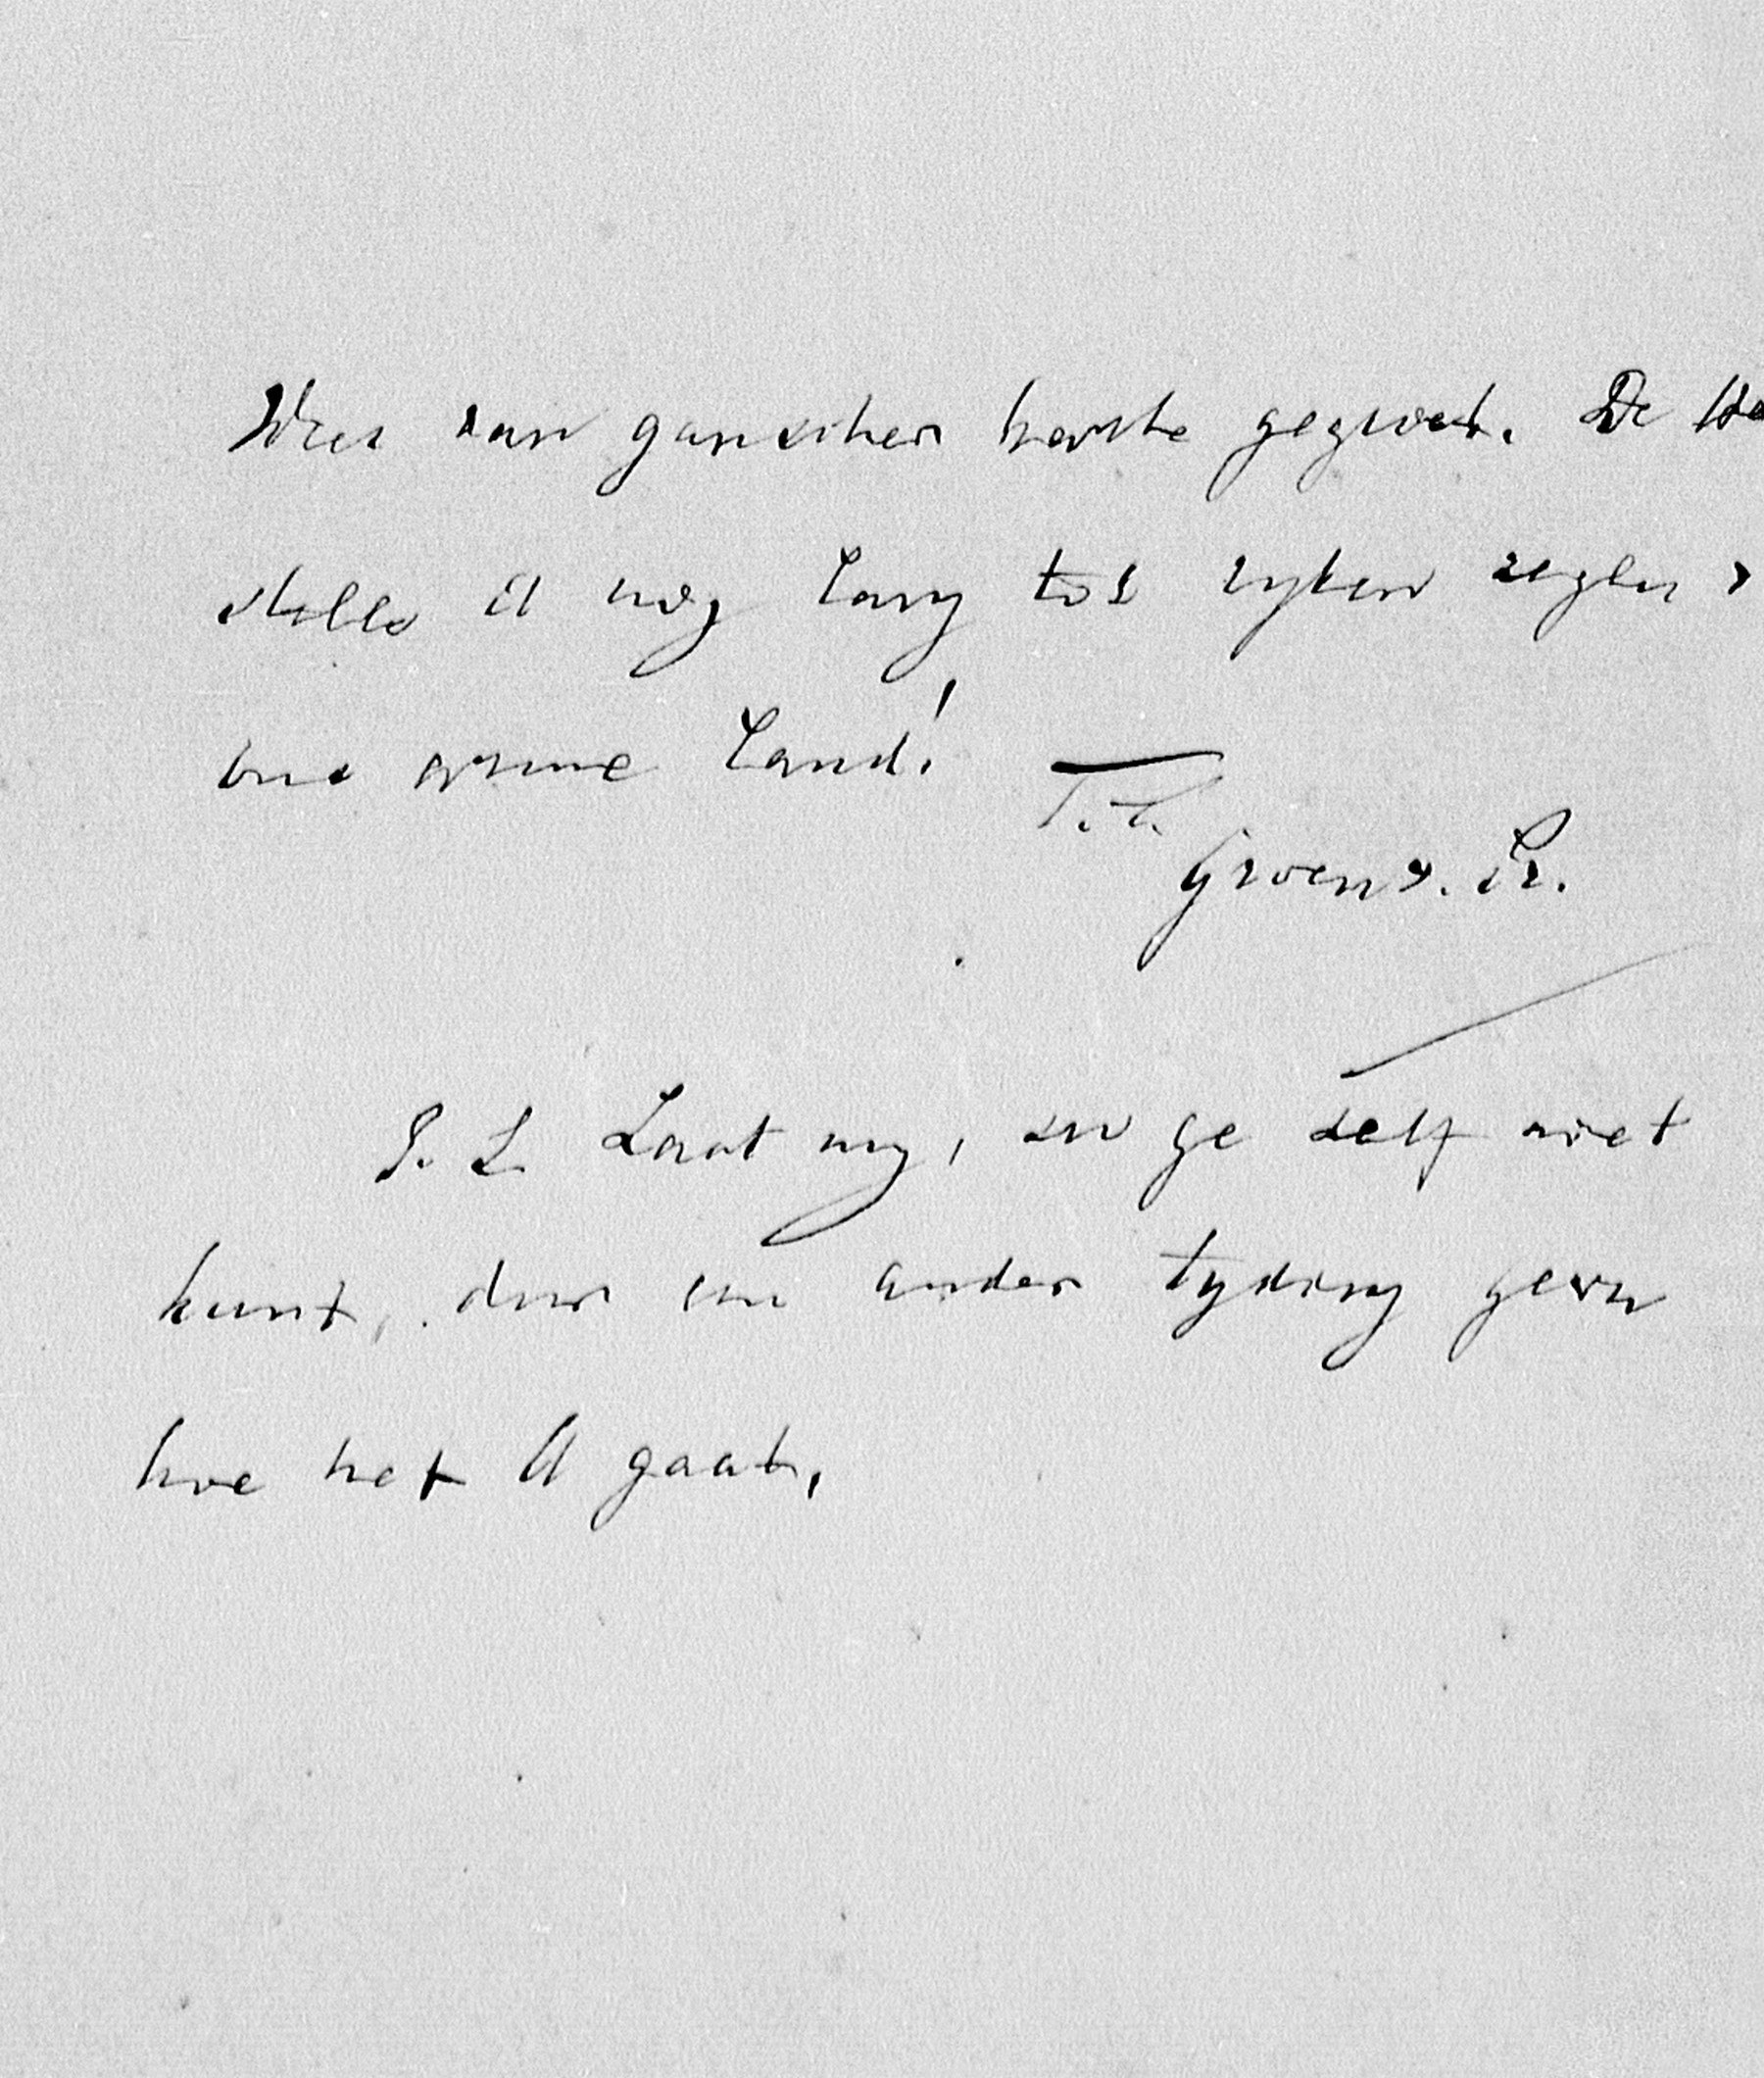 Wees van ganscher harte gegroet. De He
stelle U nog lang tot ryken zegen v
ons arme Land!
T.T.
Groen v. Pr.
P.S. Laat my, zoo ge zelf niet
kunt, door een ander tyding geven
hoe het U gaat.